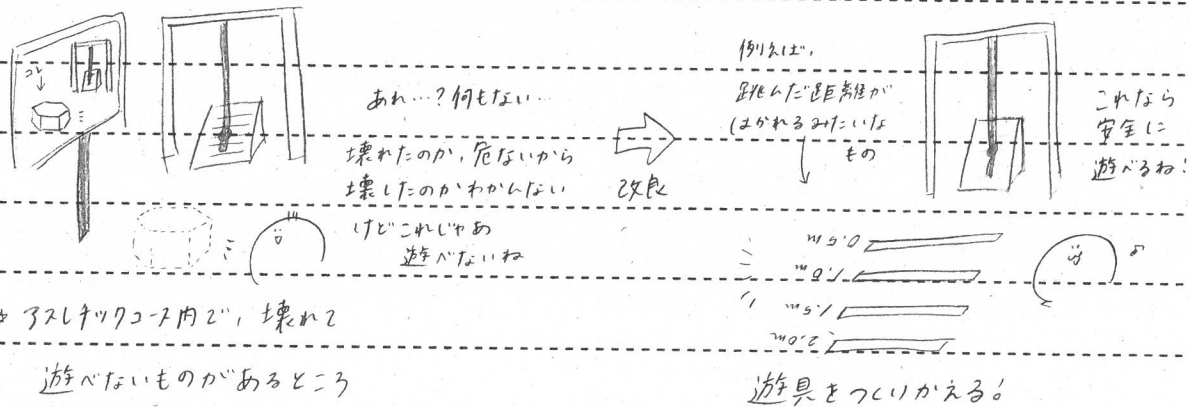 コレ
あれ…?何もない…
壊れたのか,危ないから
壊したのかわかんない
けどこれじゃあ
遊べないね
アスレチックコース内で,壊れて
遊べないものがあるところ
改良
例えば,
跳んだ距離が
はかれるみたいな
もの
これなら
安全に
遊べるね!
0.5m
1.0m
1.5m
2.0m
遊具をつくりかえる!